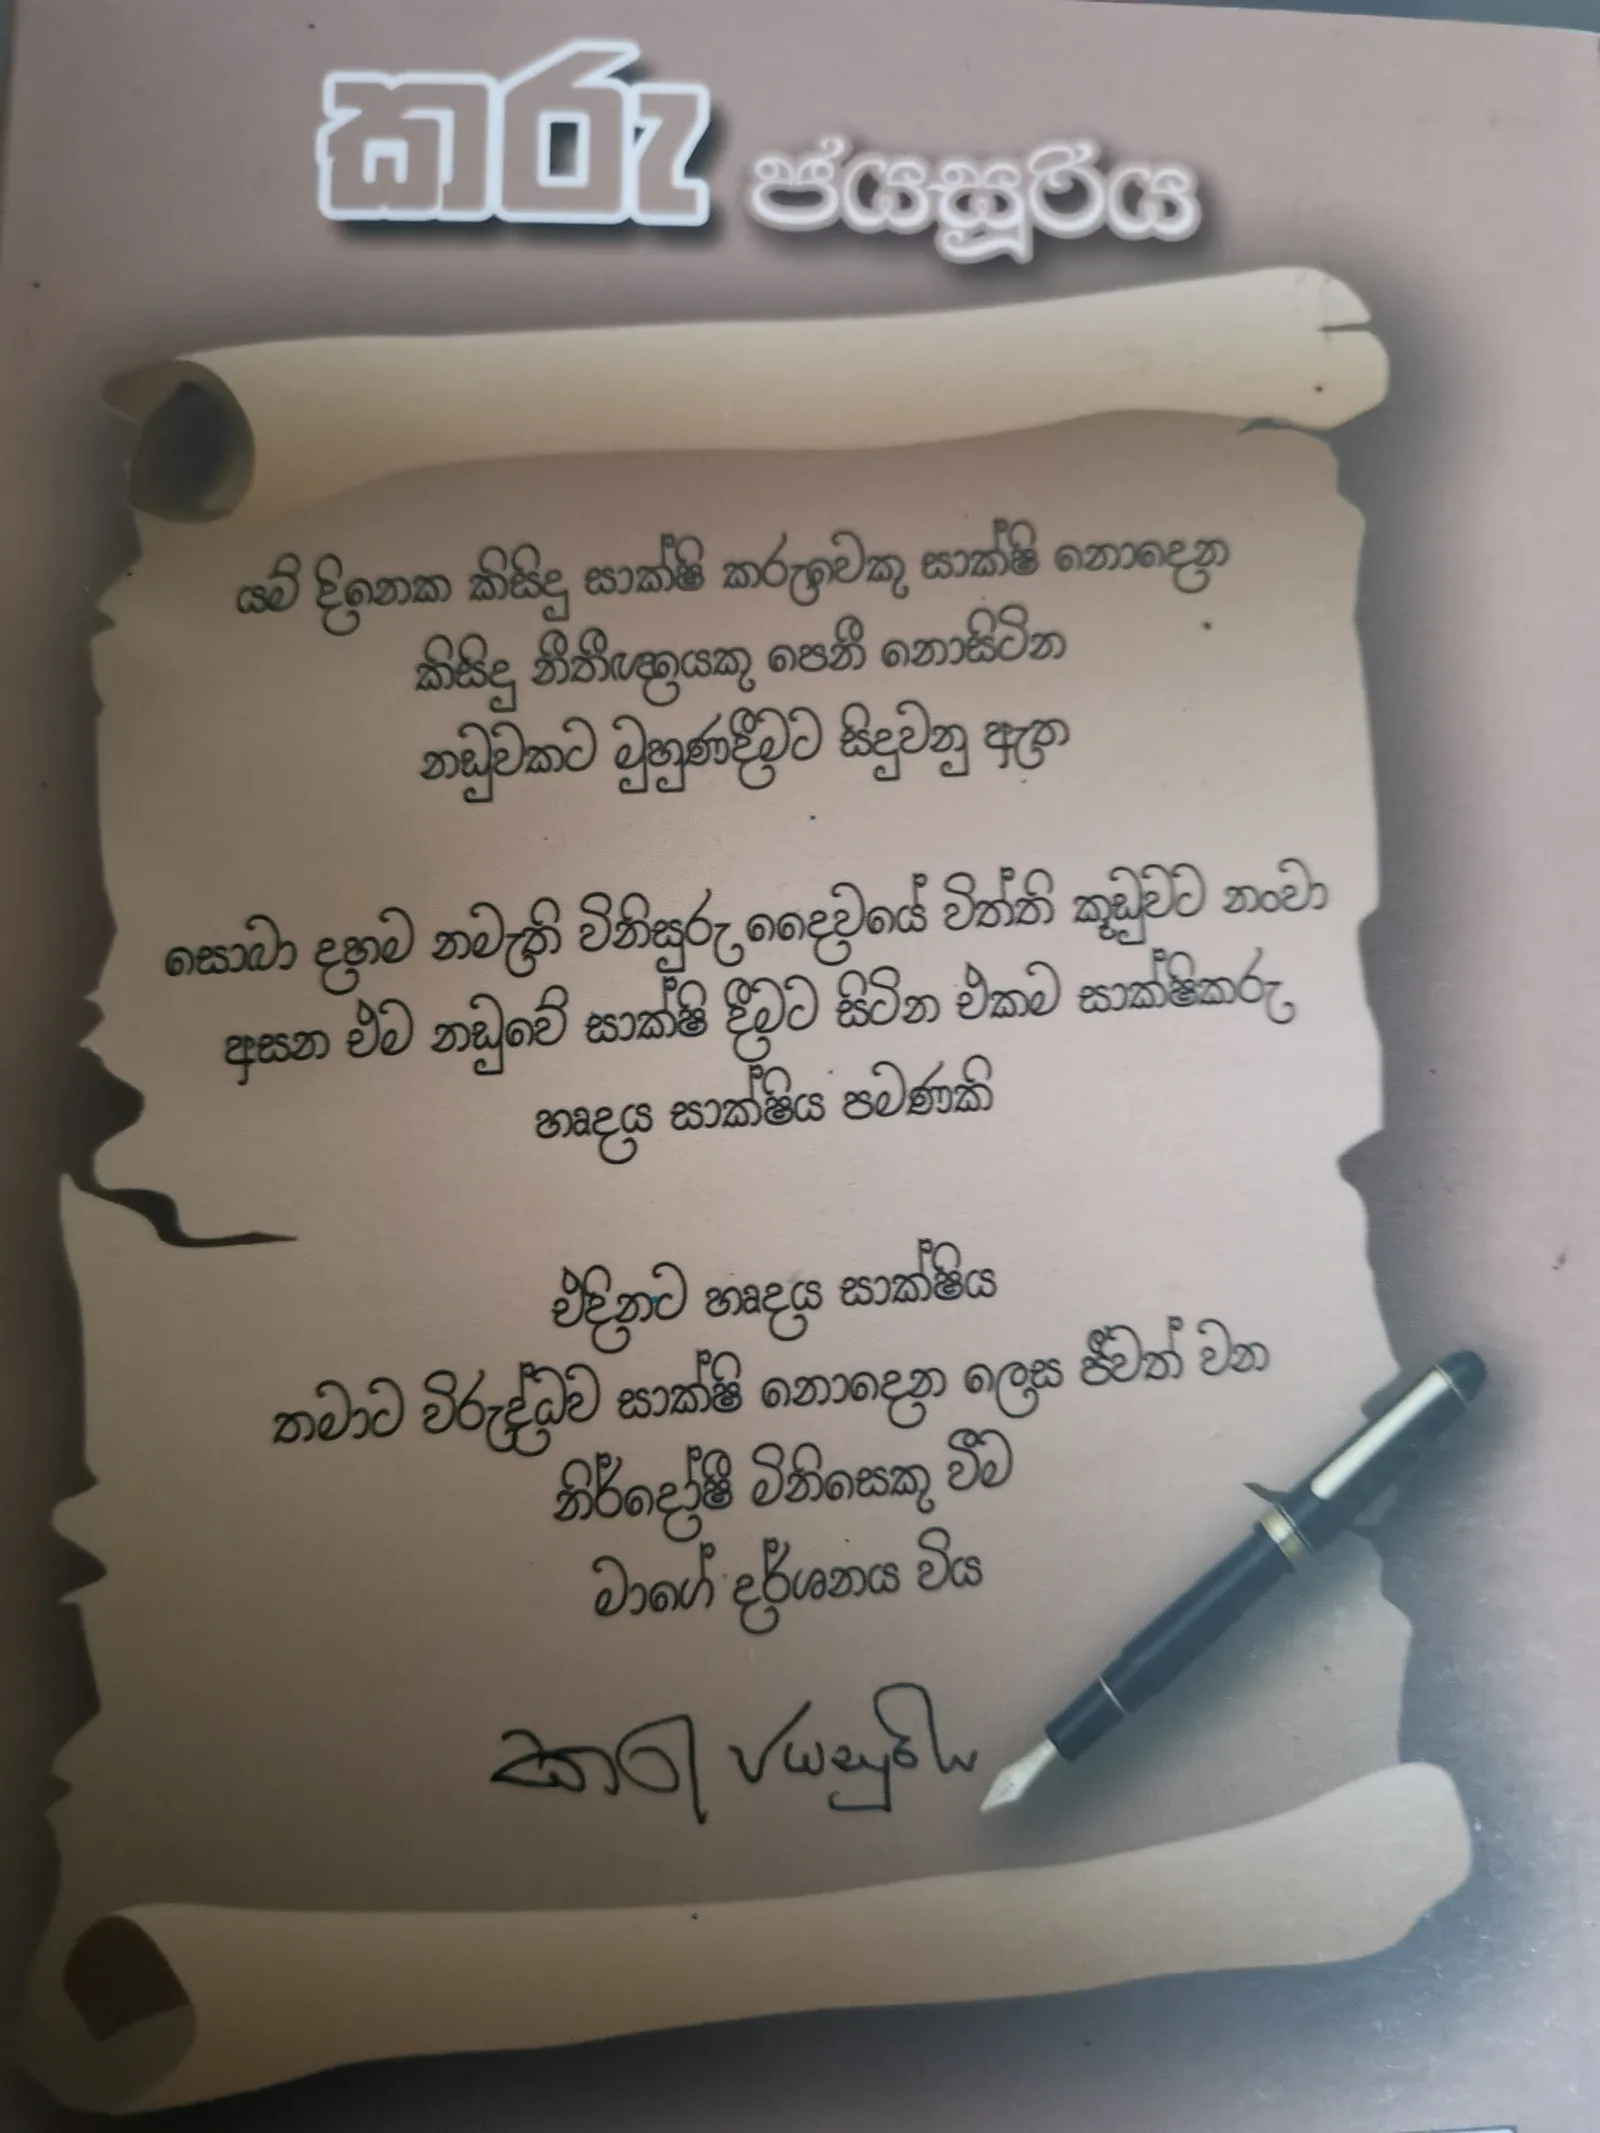 කරු ජයසූරිය
යම් දිනෙක කිසිදු සාක්ෂි කරුවෙකු සාක්ෂි නොදෙන
කිසිදු නීතීඥයෙකු පෙනී නොසිටින
නඩුවකට මුහුණදීමට සිදුවනු ඇත
සොබා දහම නමැති විනිසුරු දෛවයේ විත්ති කූඩුවට නංවා
අසන එම නඩුවේ සාක්ෂි දීමට සිටින එකම සාක්ෂිකරු
හෘදය සාක්ෂිය පමණකි
එදිනට හෘදය සාක්ෂිය
තමාට විරුද්ධව සාක්ෂි නොදෙන ලෙස ජීවත් වන
නිර්දෝෂී මිනිසෙකු වීම
මාගේ දර්ශනය විය
කරු ජයසූරිය